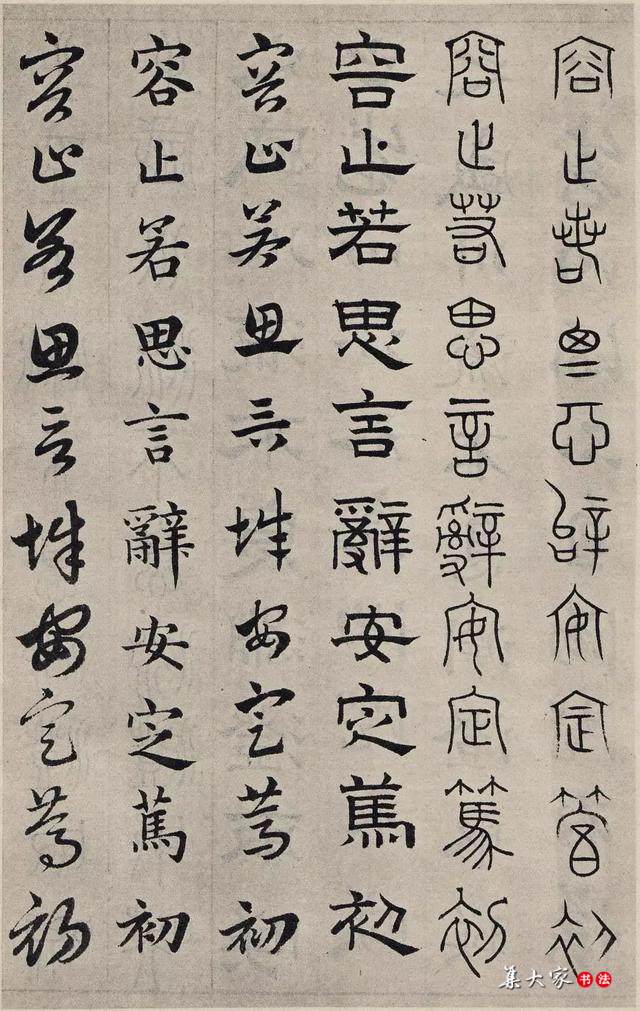 容止若思言辭安定篤初
容止若思言辭安定篤初
容止若思言辭安定篤初
容止若思言辭安定篤初
容止若思言辭安定篤初
容止若思言辭安定篤初
集大家书法